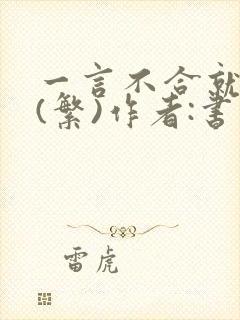 一言不合就
(繁)作者:書
雷虎